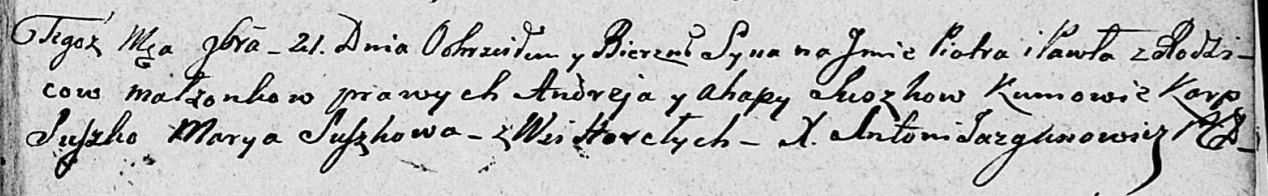 Tegoż Mca gbra - 21. Dnia Ochrzciłem y Bierzm: Syna na Jmie Piotra i Pawła z Rodzi-
cow małżonkow prawych Andreja y Ahapy Suszkow Kumowie Karp
Suszko Marya Suszkowa - z Wsi Horełych - X. Antoni Jazgunowicz